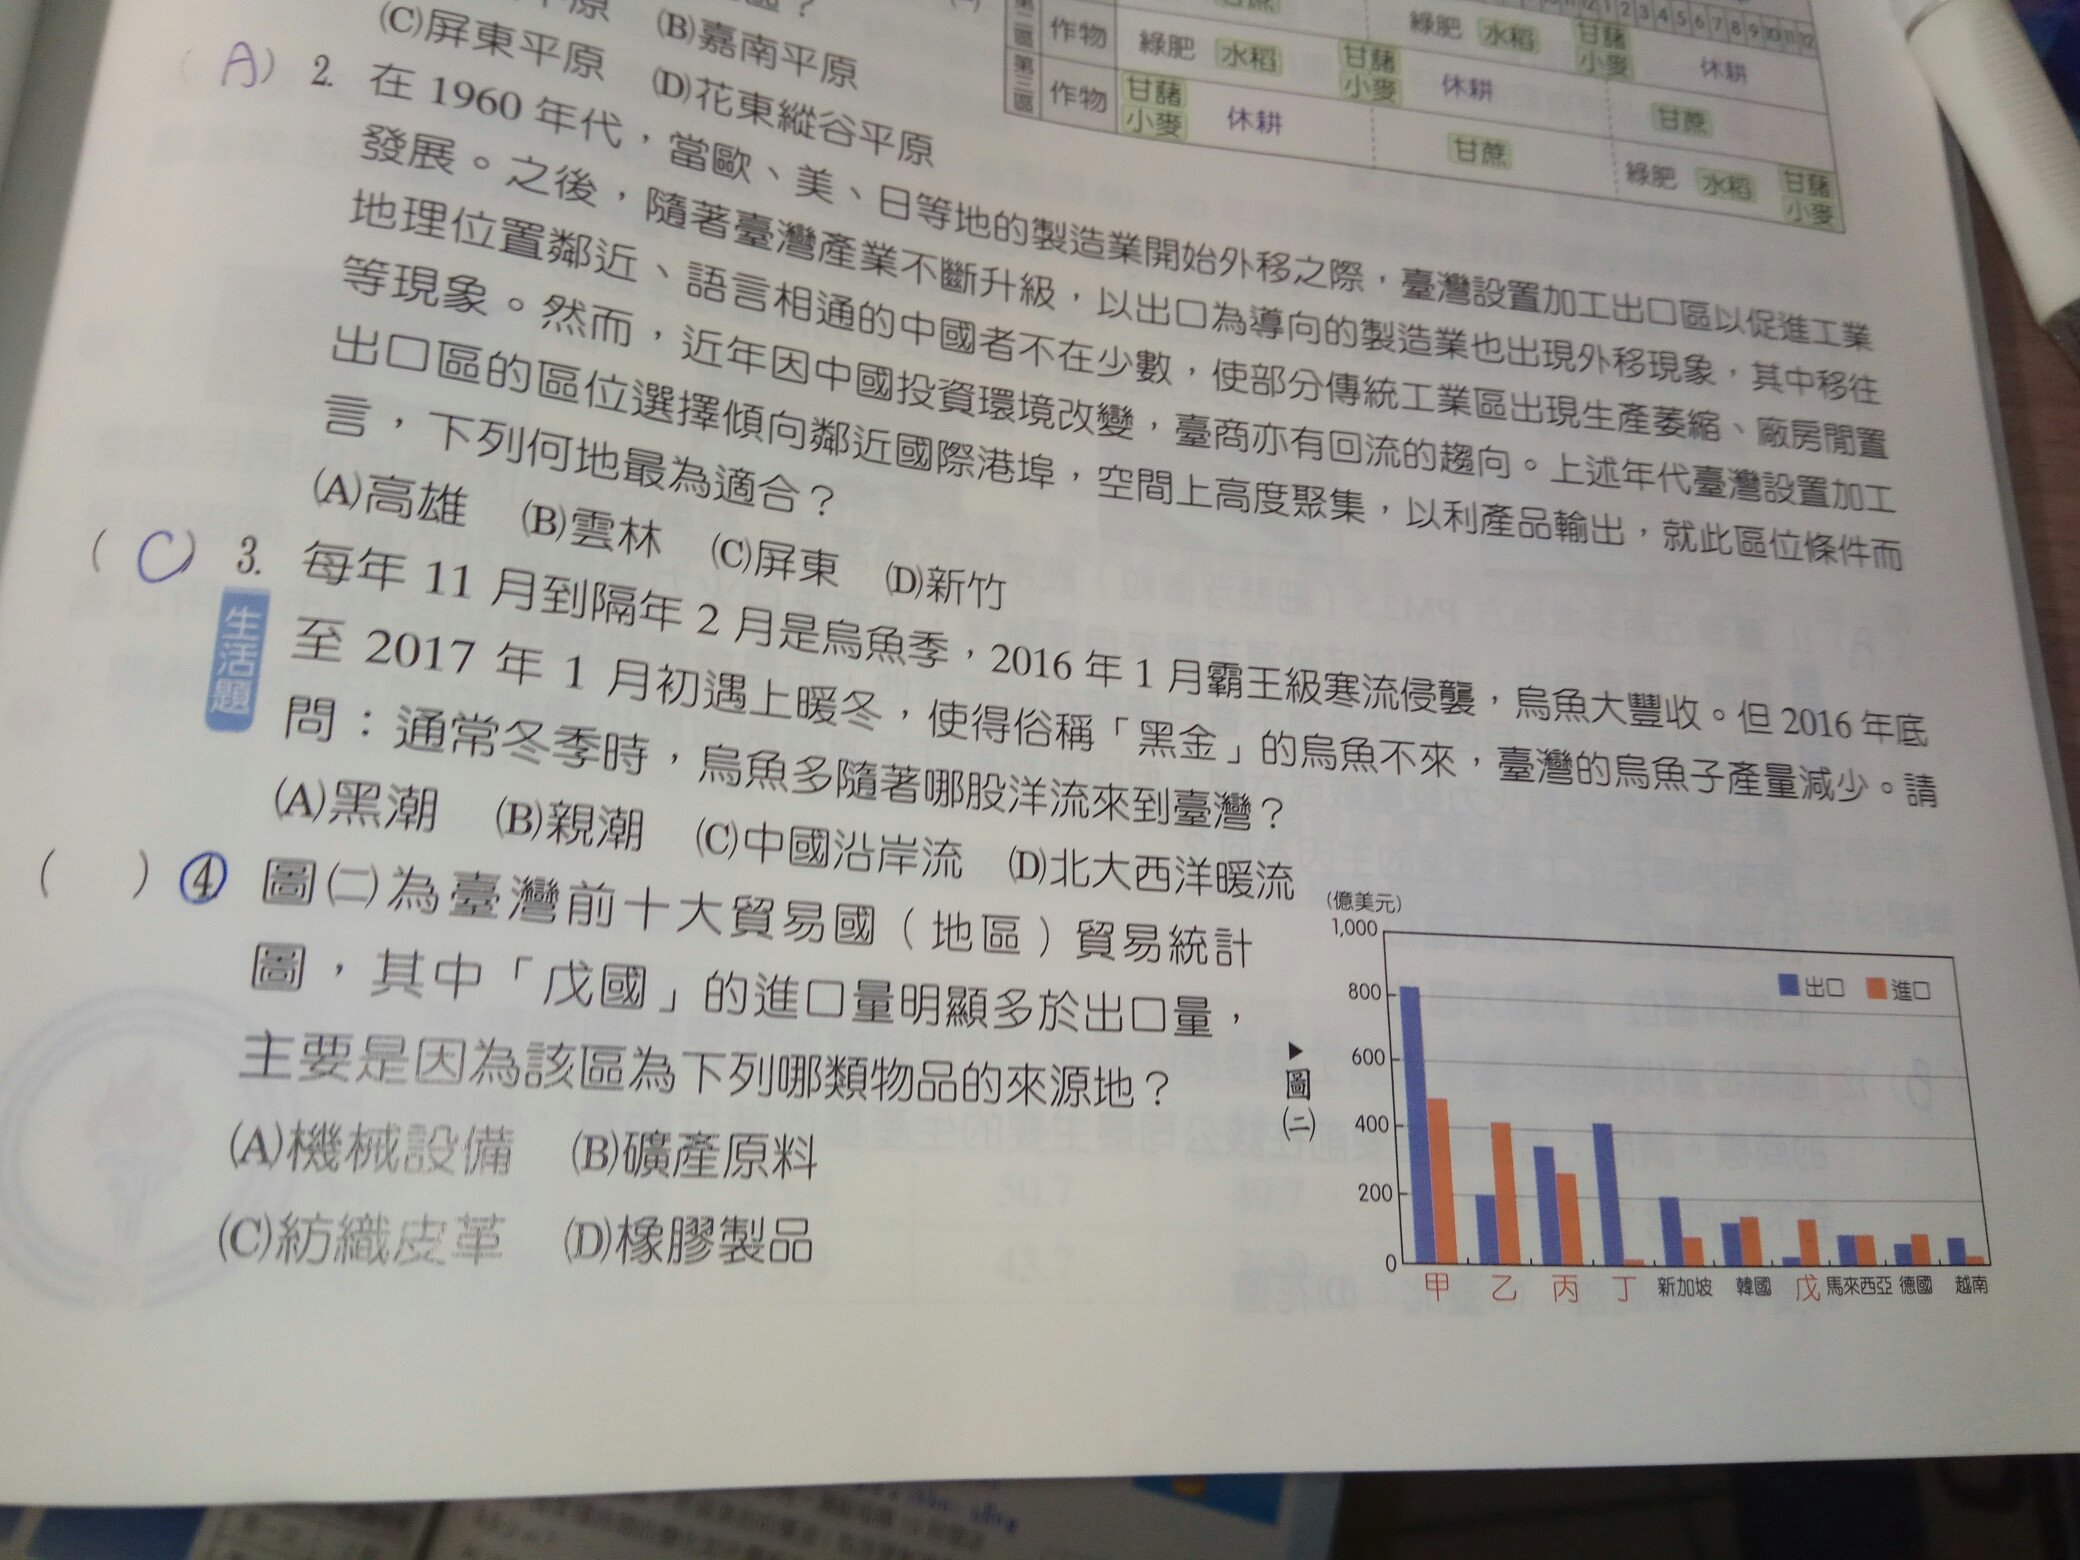 (C)屏東平原 (B)嘉南平原
(D)花東縱谷平原
第二區 作物 綠肥 水稻 甘藷 小麥 休耕 甘蔗
第三區 作物 甘藷 小麥 休耕 甘蔗 綠肥 水稻 甘藷 小麥
綠肥 水稻 甘藷 小麥 休耕
( A ) 2. 在 1960 年代，當歐、美、日等地的製造業開始外移之際，臺灣設置加工出口區以促進工業
發展。之後，隨著臺灣產業不斷升級，以出口為導向的製造業也出現外移現象，其中移往
地理位置鄰近、語言相通的中國者不在少數，使部分傳統工業區出現生產萎縮、廠房閒置
等現象。然而，近年因中國投資環境改變，臺商亦有回流的趨向。上述年代臺灣設置加工
出口區的區位選擇傾向鄰近國際港埠，空間上高度聚集，以利產品輸出，就此區位條件而
言，下列何地最為適合？
(A)高雄 (B)雲林 (C)屏東 (D)新竹
( C ) 3. 每年 11 月到隔年 2 月是烏魚季，2016 年 1 月霸王級寒流侵襲，烏魚大豐收。但 2016 年底
生活題
至 2017 年 1 月初遇上暖冬，使得俗稱「黑金」的烏魚不來，臺灣的烏魚子產量減少。請
問：通常冬季時，烏魚多隨著哪股洋流來到臺灣？
(A)黑潮 (B)親潮 (C)中國沿岸流 (D)北大西洋暖流
( ) 4 圖(二)為臺灣前十大貿易國（地區）貿易統計
圖，其中「戊國」的進口量明顯多於出口量，
主要是因為該區為下列哪類物品的來源地？
(A)機械設備 (B)礦產原料
(C)紡織皮革 (D)橡膠製品
▶圖(二)
(億美元)
1,000
800
600
400
200
0
出口 進口
甲 乙 丙 丁 新加坡 韓國 戊 馬來西亞 德國 越南